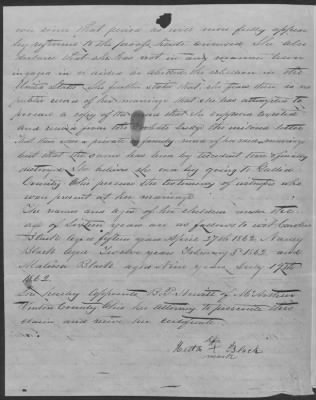 ever since that period as will more fully appear
by reference to the proofs hereto annexed. She also
declares that she has not in any manner been
engaged in or aided or abetted the rebellion in the
United States. She further states that she finds there is no
public record of her marriage that she has attempted to
procure a copy of the record that she supposed existed
and received from the Probate Judge the inclosed letter
that there was a private family record of her said marriage
but that the same has been by accident torn & finally
destroyed. She believes she can by going to Gallia
County Ohio procure the testimony of witnesses who
were present at her marriage.
The names and ages of her children under the
age of sixteen years are as follows to wit Caroline
Black aged fifteen years April 27th 1862, Nancy
Black aged Twelve years February 5th 1862 and
Malissa Black aged Nine years July 19th
1862.
She hereby appoints B.P. Hewitt of McArthur
Vinton County Ohio her attorney to prosecute this
claim and receive her certificate
her
X Black
mark